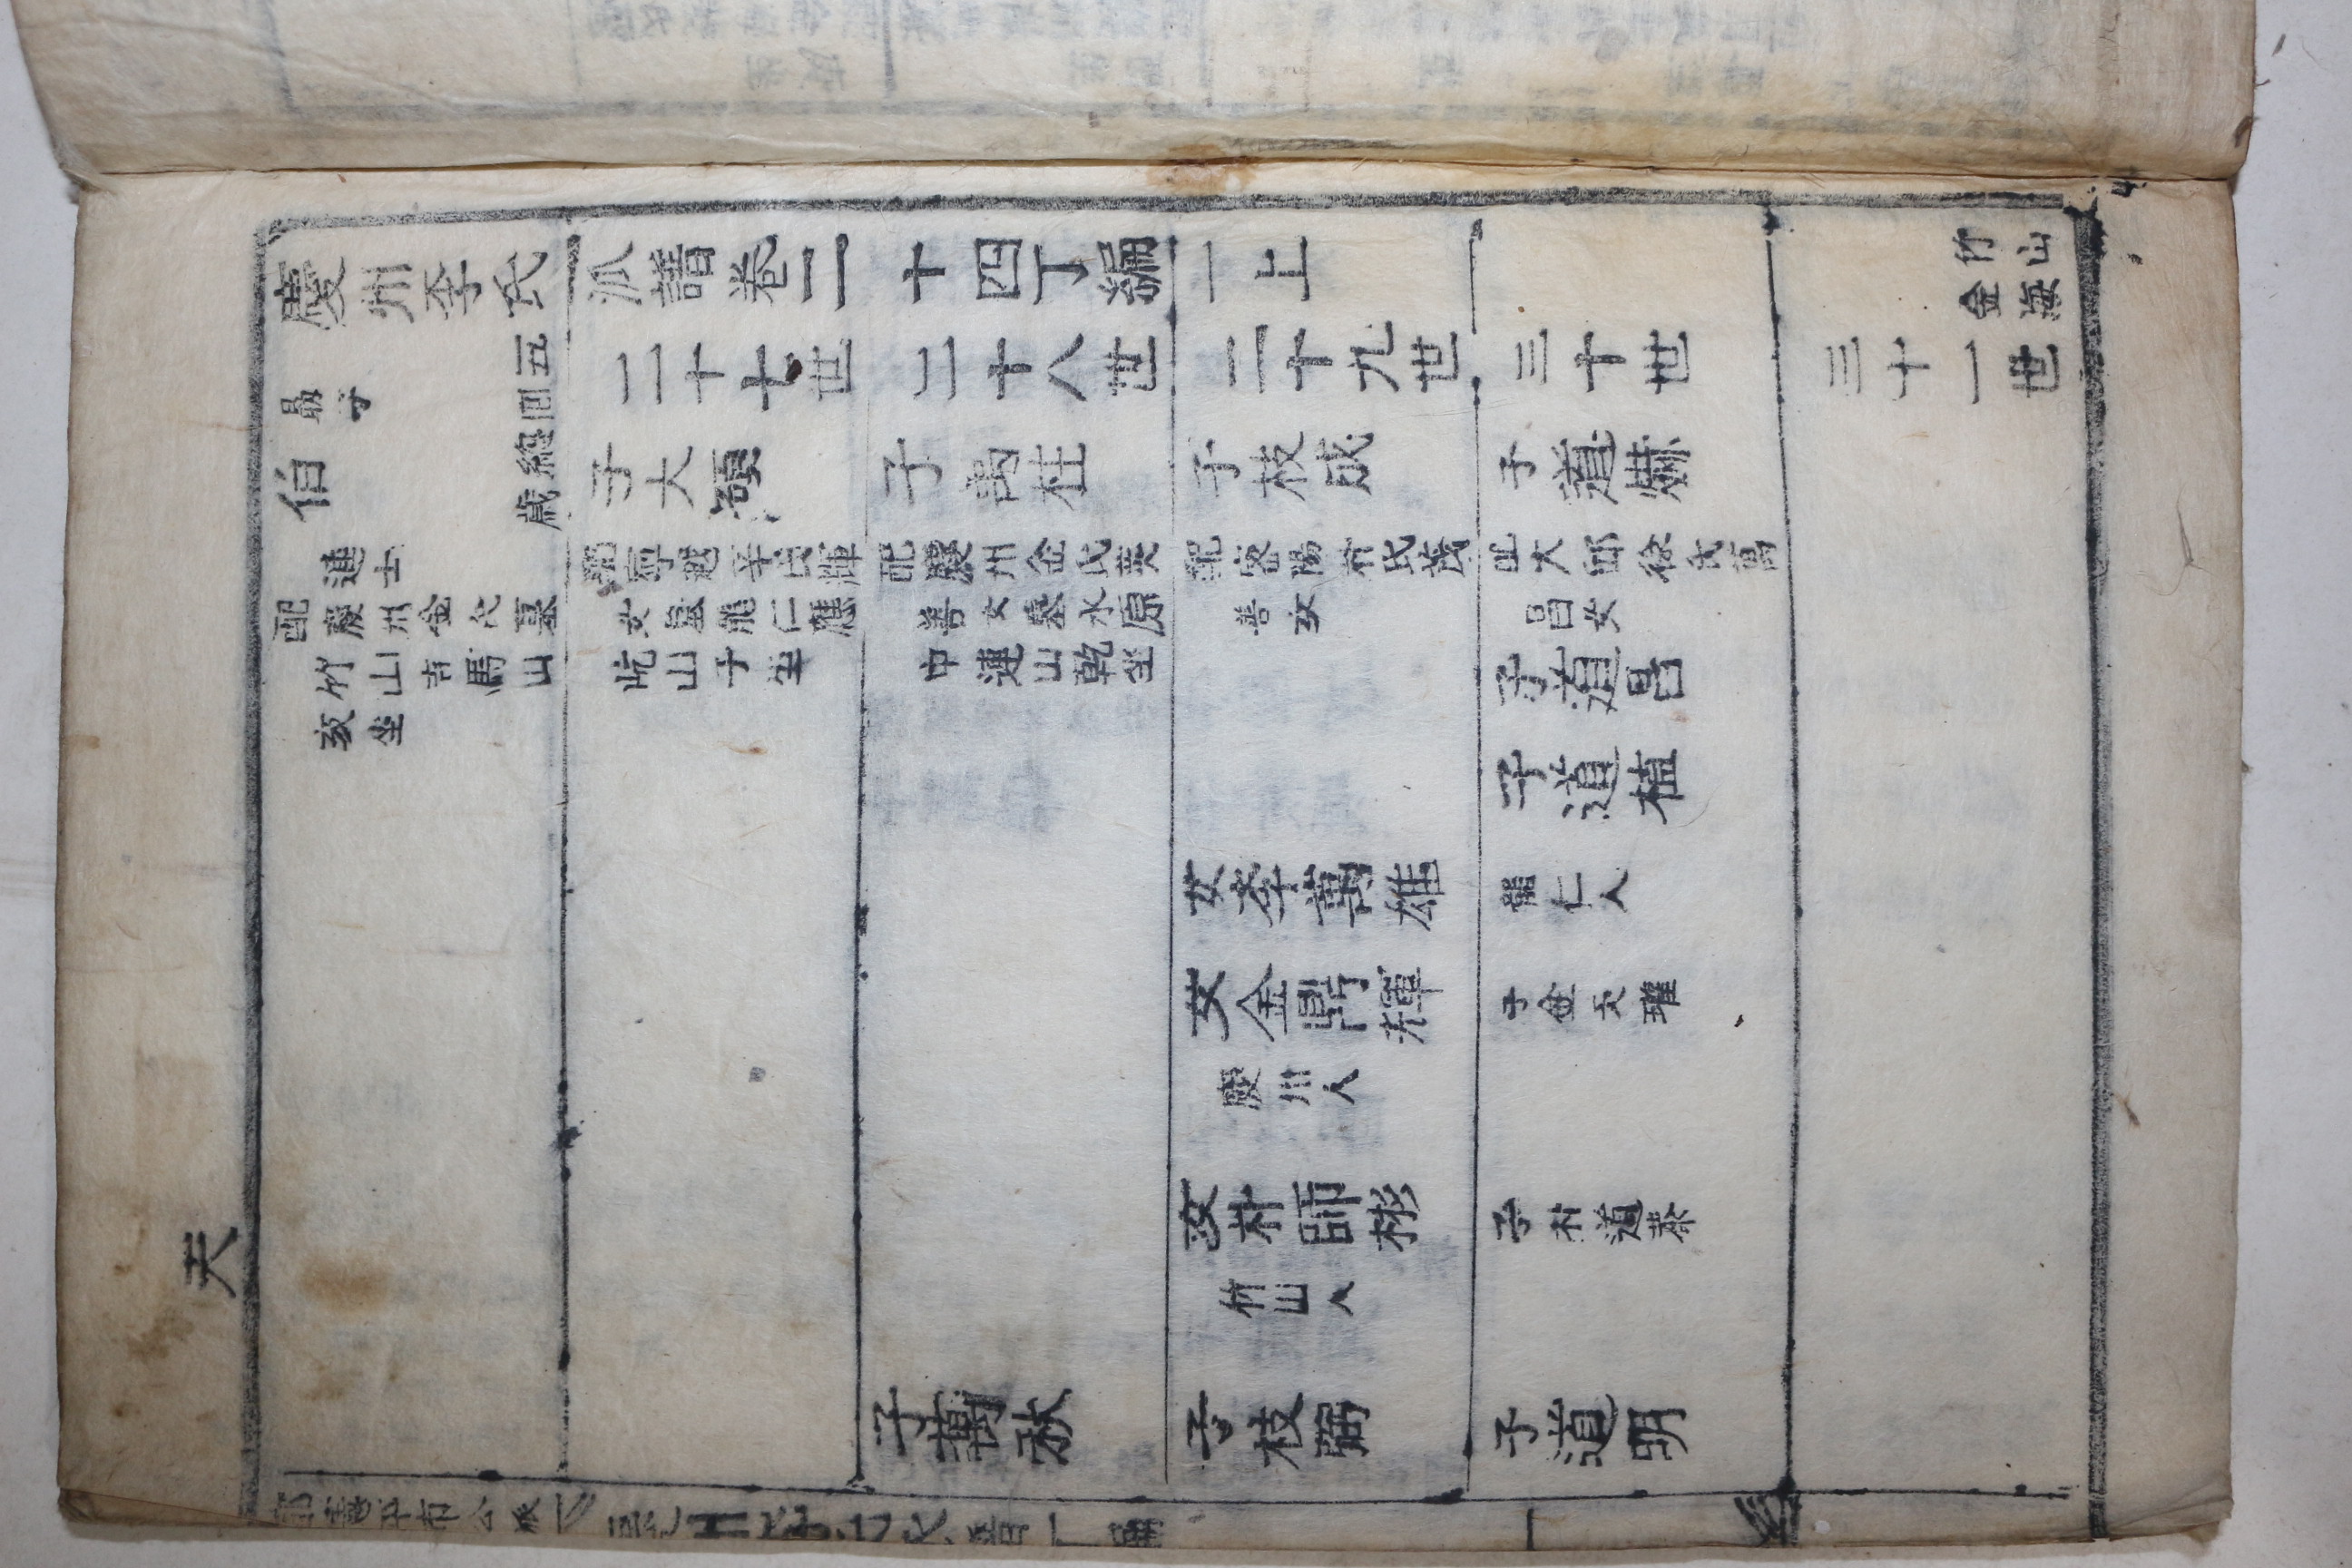 天
慶州李氏派譜卷二十四丁編一上
竹山
金海
五
總
歲
二十七世
二十八世
二十九世
三十世
三十一世
伯
連士
配慶州金氏墓
竹山吉馬山
亥坐
子大碩
配寧越辛氏輝
女墓龍仁應
屹山子坐
子萬柱
配慶州金氏英
善女墓水原
中連山乾坐
子枝成
配密陽朴氏茂
善女
子道爀
配大邱徐氏萬
昌女
子道昌
子道植
女李萬雄
龍仁人
女金鼎輝
慶州人
子金天瓘
女朴師彬
竹山人
子朴道泰
子萬秋
子枝弼
子道明